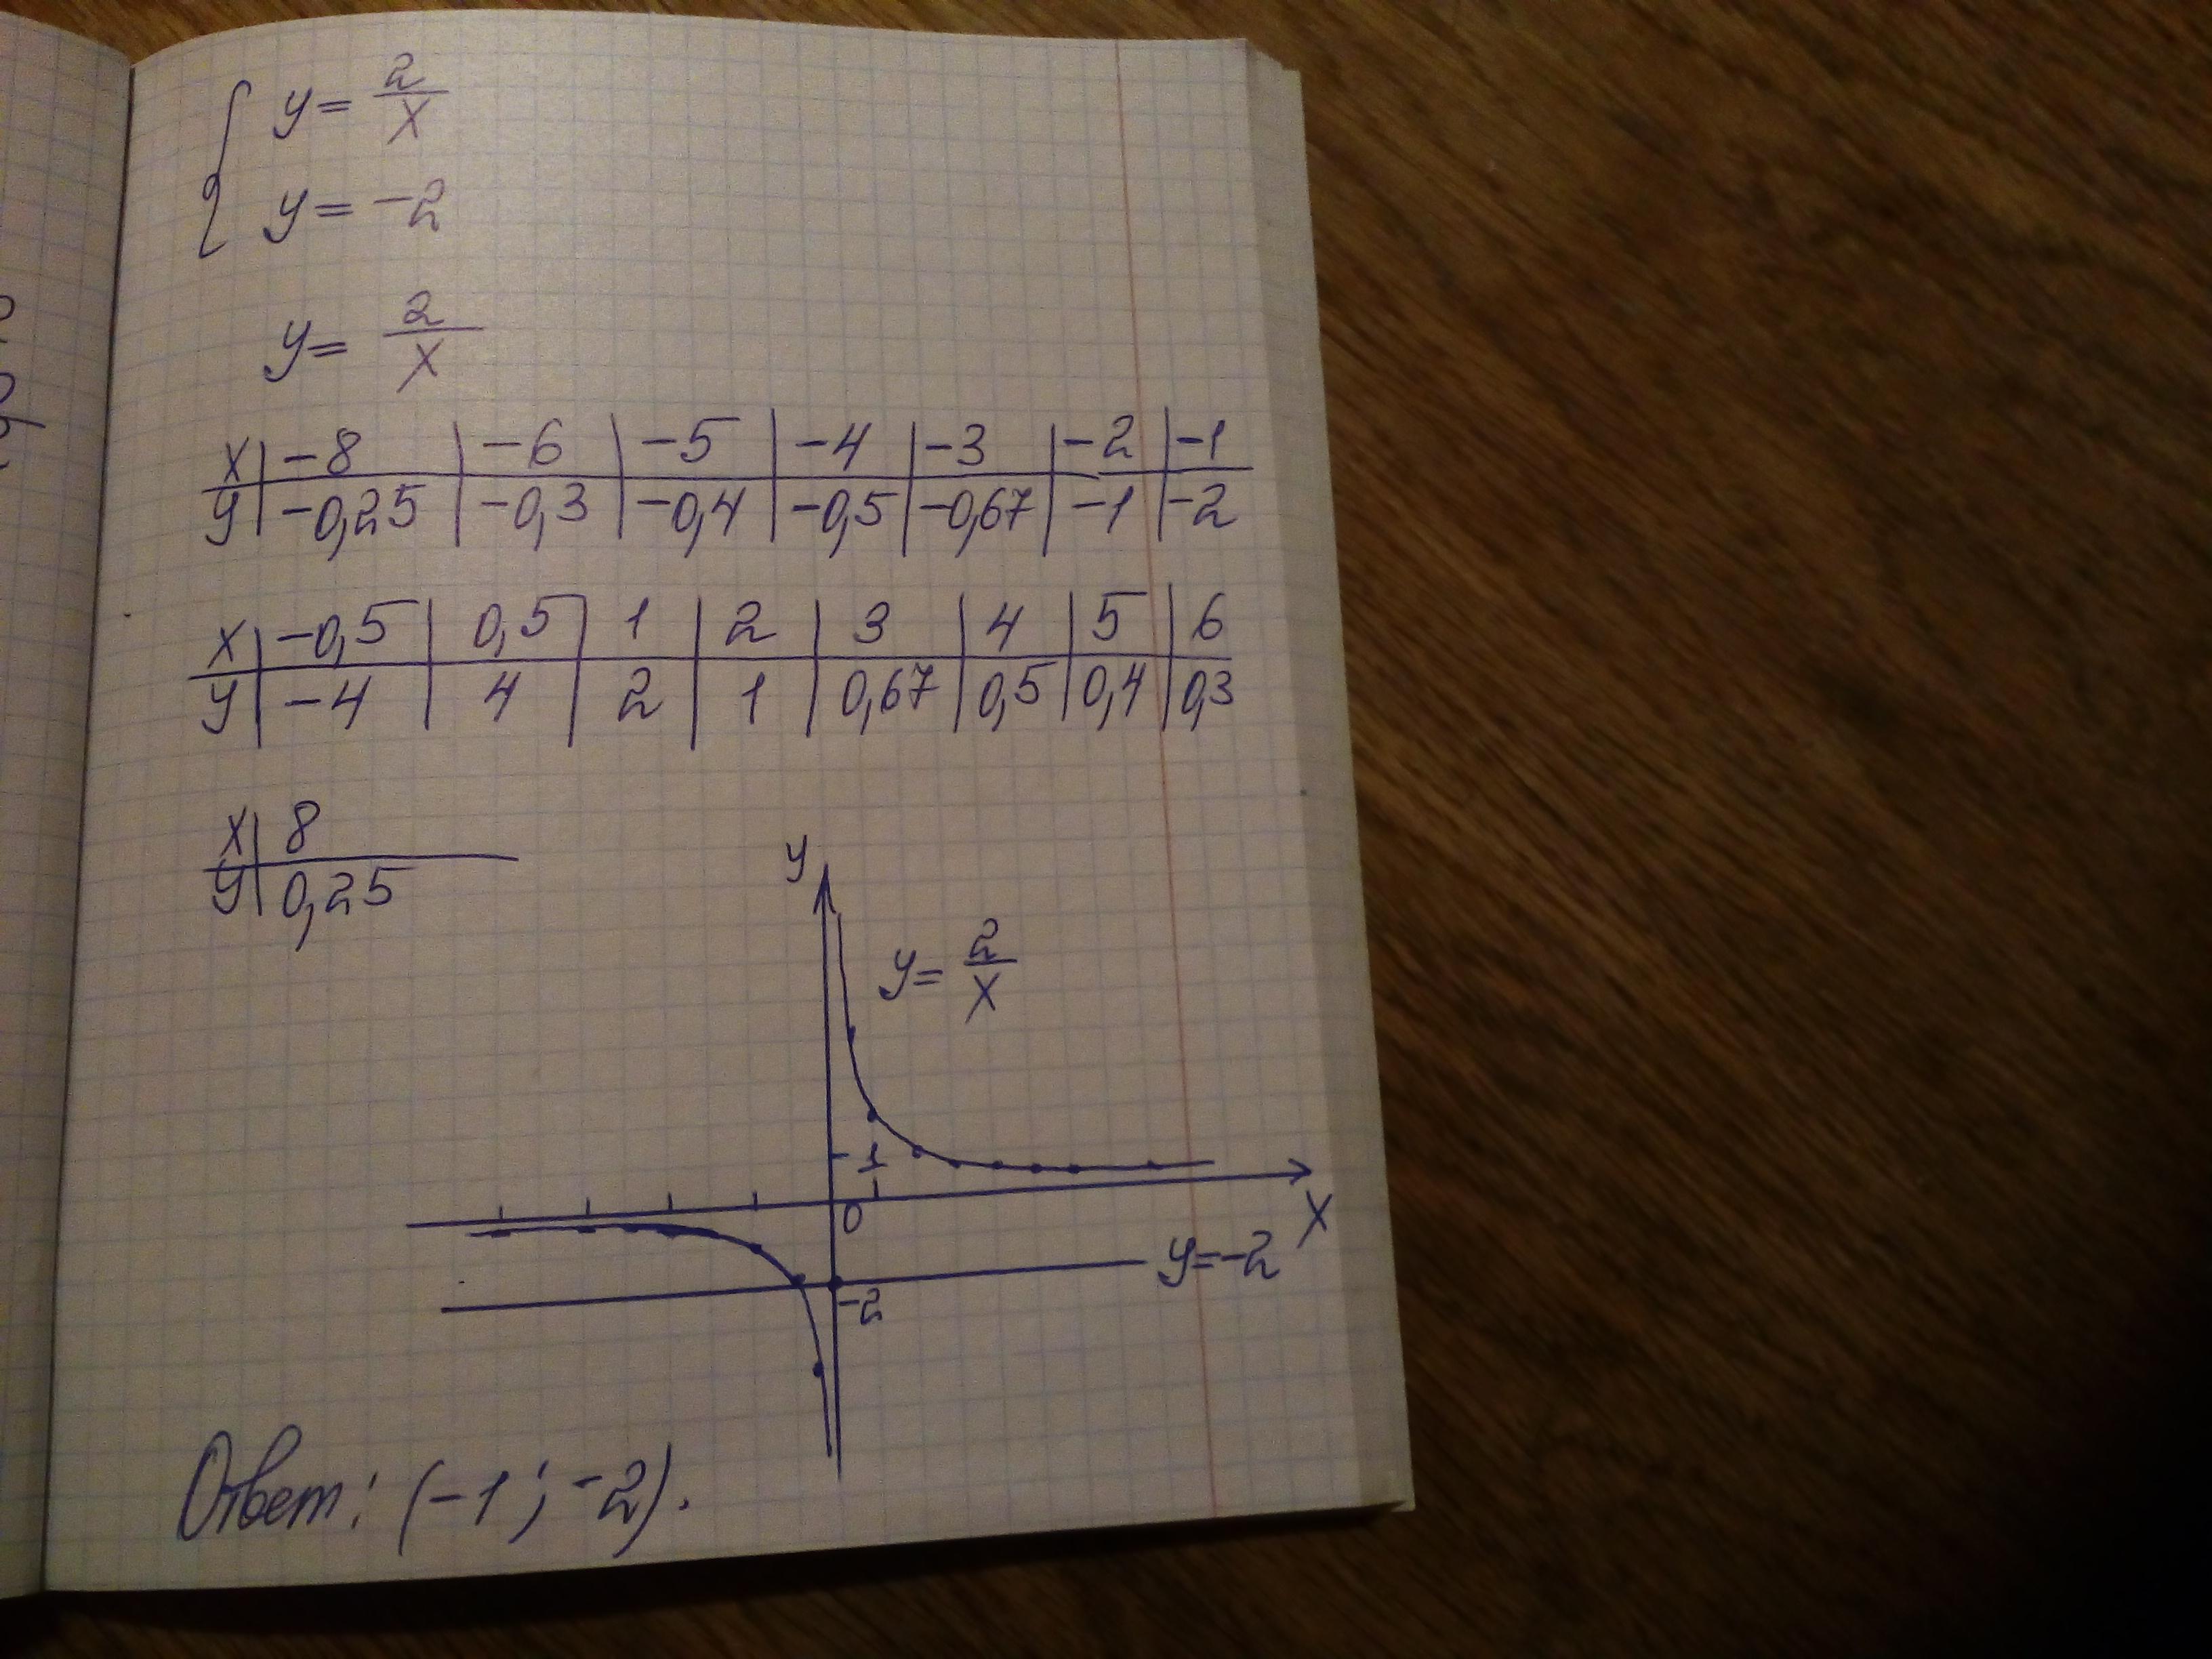 y = 2/x
y = -2
y = 2/x
x | -8 | -6 | -5 | -4 | -3 | -2 | -1
y | -0,25 | -0,3 | -0,4 | -0,5 | -0,67 | -1 | -2
x | -0,5 | 0,5 | 1 | 2 | 3 | 4 | 5 | 6
y | -4 | 4 | 2 | 1 | 0,67 | 0,5 | 0,4 | 0,3
x | 8
y | 0,25
y
y = 2/x
1
0
X
y=-2
-2
Ответ: (-1; -2).